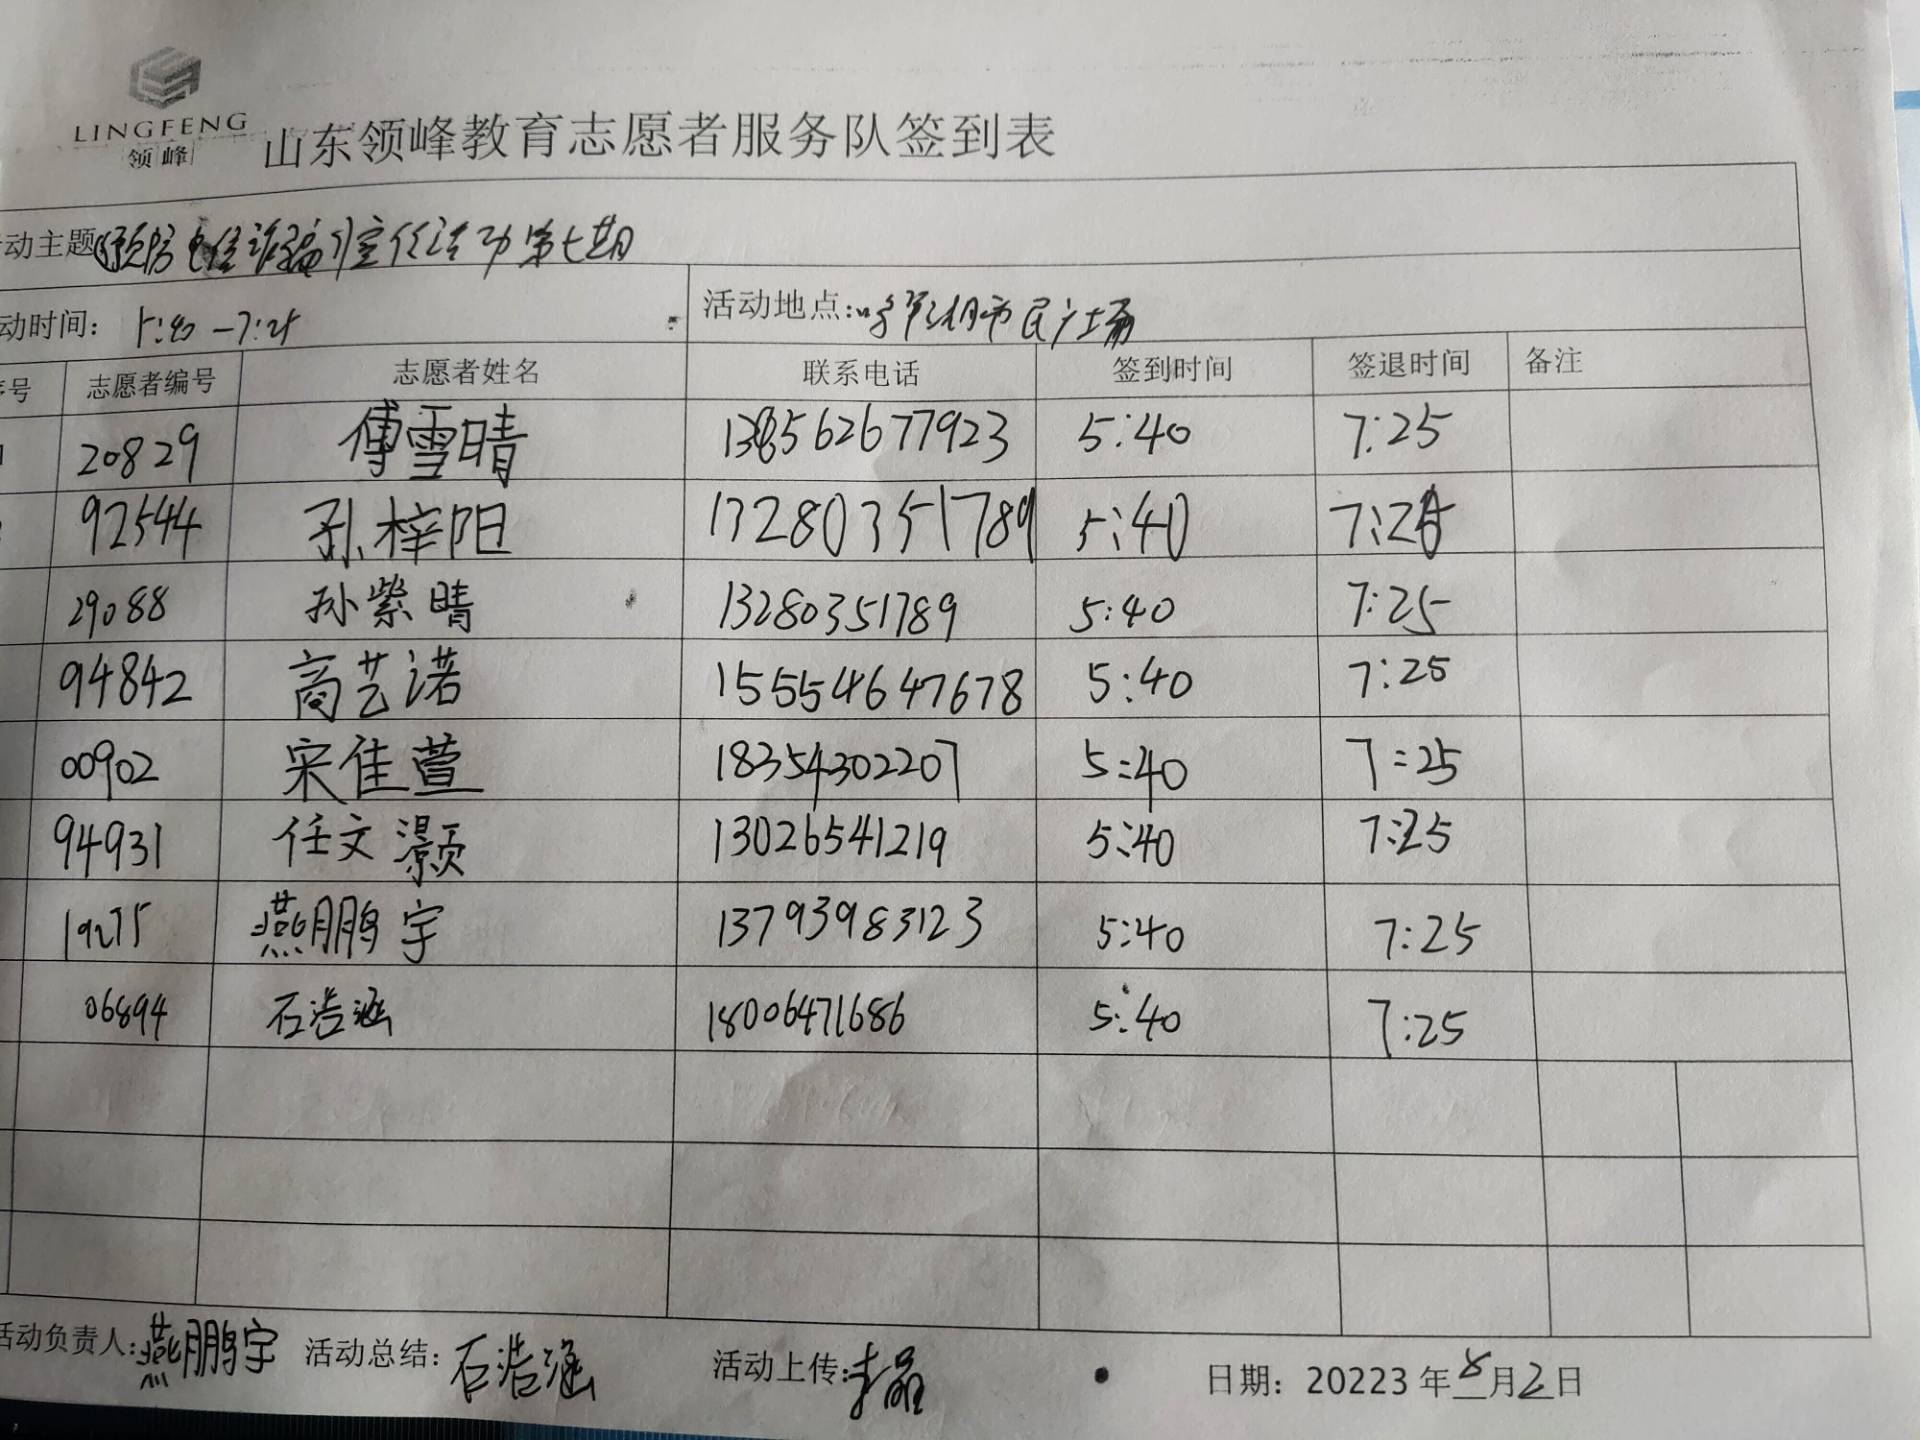 LINGFENG
领峰
山东领峰教育志愿者服务队签到表
动主题 预防电信诈骗宣传活动第七期
动时间: 5:40-7:25 活动地点: 市民广场
号 志愿者编号 志愿者姓名 联系电话 签到时间 签退时间 备注
20829 傅雪晴 13562677923 5:40 7:25
92544 孙梓阳 13280351789 5:40 7:25
29088 孙紫晴 13280351789 5:40 7:25
94842 高艺诺 15554647678 5:40 7:25
00902 宋佳萱 18354302207 5:40 7:25
94931 任文灏 13026541219 5:40 7:25
19275 燕鹏宇 13793983123 5:40 7:25
06894 石浩涵 18006471686 5:40 7:25
活动负责人: 燕鹏宇 活动总结: 石浩涵 活动上传: 李磊 日期: 20223年8月2日